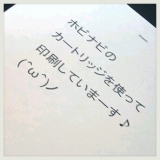 ホビナビの
カートリッジを使って
印刷していまーす♪
(^ω^)ノ